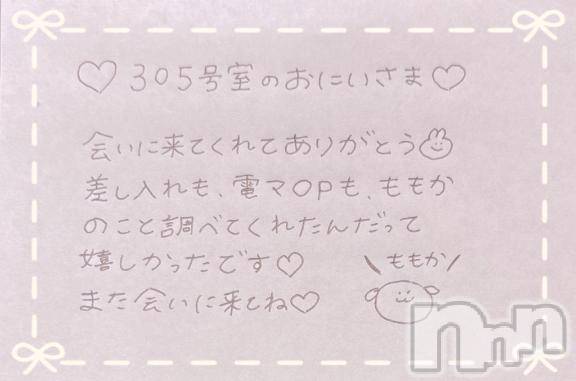 ♡305号室のおにいさま♡
会いに来てくれてありがとう
差し入れも、電マOPも、ももか
のこと調べてくれたんだって
嬉しかったです♡
\ももか/
また会いに来てね♡
nnn